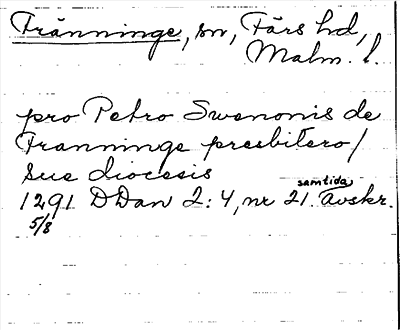 Tränninge, sn, Färs hd,
Malm. l.
pro Petro Swenonis de
Tranninge presbitero/
sue diocesis
1291 DDan 2:4, nr 21. samtida Avskr.
5/8